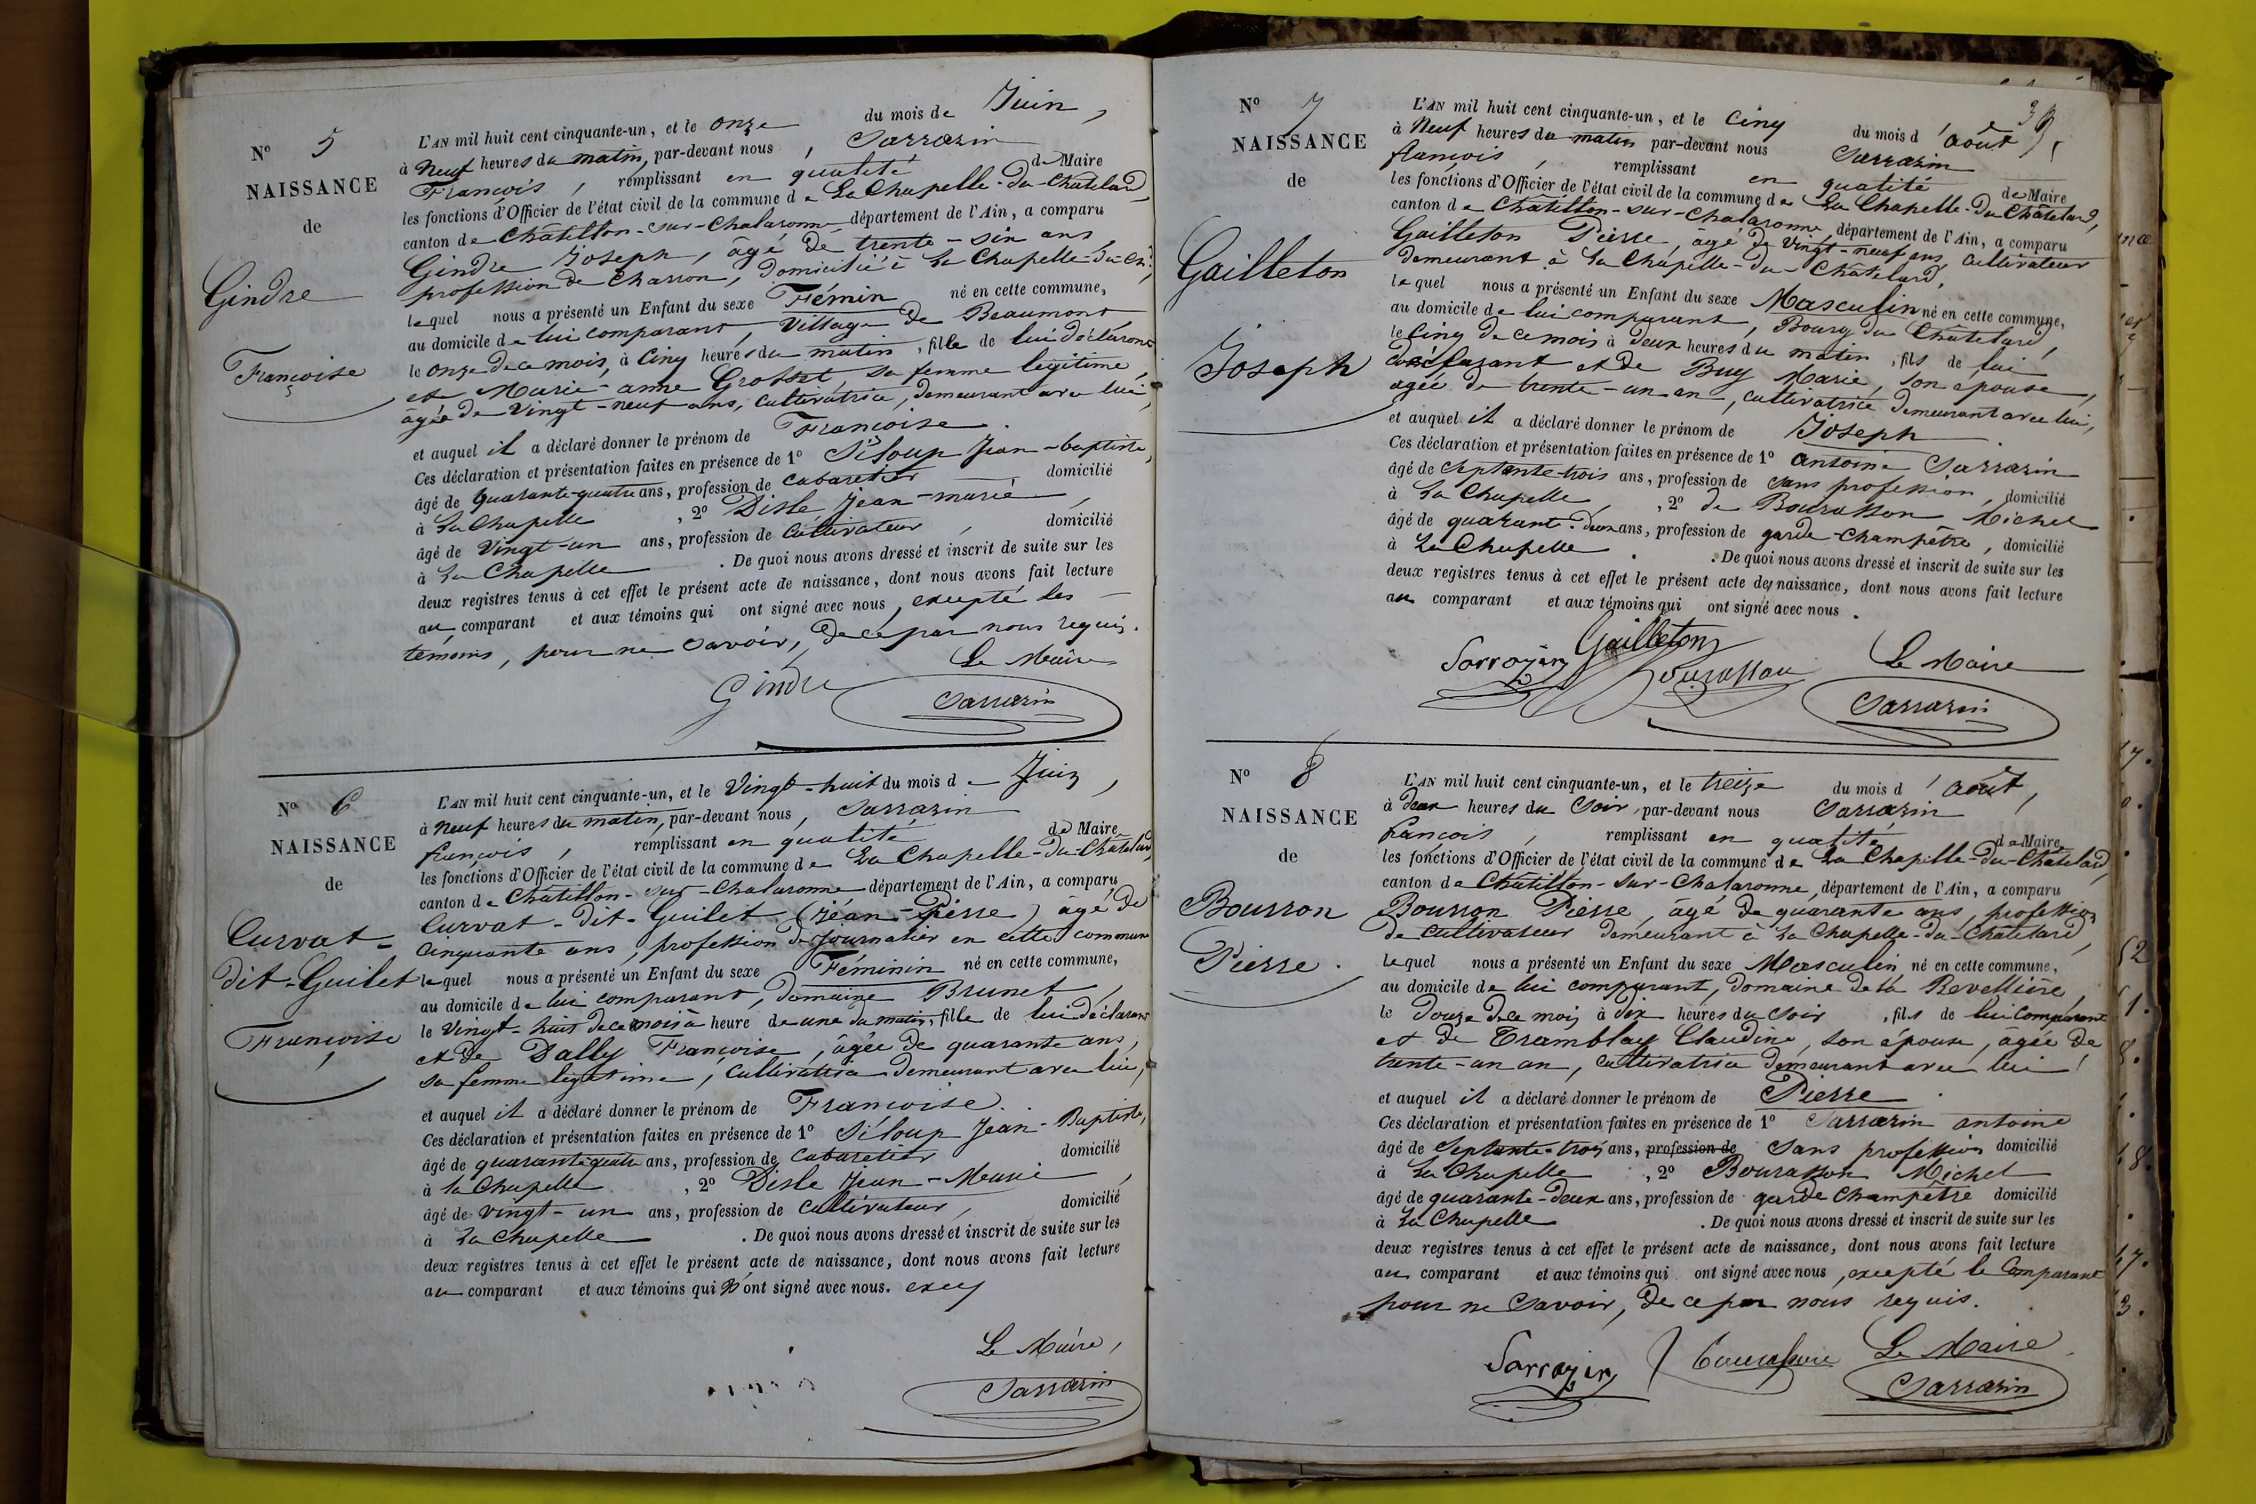 N° 5
NAISSANCE
de
Gindre
Françoise
L'AN mil huit cent cinquante-un, et le onze du mois de Juin,
à Neuf heures du matin, par-devant nous, Sarrazin
François, remplissant en qualité de Maire
les fonctions d'Officier de l'état civil de la commune de La Chapelle-du-Châtelard,
canton de Châtillon-sur-Chalaronne, département de l'Ain, a comparu
Gindre Joseph, âgé de trente-six ans,
profession de Charron, domicilié à La Chapelle-du-Ch.,
lequel nous a présenté un Enfant du sexe Fémin né en cette commune,
au domicile de lui comparant, Village de Beaumont,
le onze de ce mois, à Cinq heures du matin, fille de lui déclarant
et Marie-anne Grosset, sa femme legitime,
âgée de Vingt-neuf ans, Cultivatrice, demeurant avec lui,
et auquel il a déclaré donner le prénom de Françoise.
Ces déclaration et présentation faites en présence de 1° Siloup Jean-baptiste,
âgé de quarante-quatre ans, profession de Cabaretier domicilié
à La Chapelle, 2° Disle Jean-marie,
âgé de Vingt-un ans, profession de Cultivateur, domicilié
à La Chapelle. De quoi nous avons dressé et inscrit de suite sur les
deux registres tenus à cet effet le présent acte de naissance, dont nous avons fait lecture
au comparant et aux témoins qui ont signé avec nous, excepté les
témoins, pour ne savoir, de ce par nous requis.
Le Maire
Gindre
Sarrazin
N° 6
NAISSANCE
de
Curvat-
dit-Guilet
Françoise
L'AN mil huit cent cinquante-un, et le Vingt-huit du mois de Juin,
à Neuf heures du matin, par-devant nous, Sarrazin
françois, remplissant en qualité de Maire
les fonctions d'Officier de l'état civil de la commune de La Chapelle-du-Châtelard,
canton de Châtillon-sur-Chalaronne département de l'Ain, a comparu
Curvat-dit-Guilet (Jean-Pierre) âgé de
Cinquante ans, profession de Journalier en cette commune
lequel nous a présenté un Enfant du sexe Féminin né en cette commune,
au domicile de lui comparant, domaine Brunet,
le Vingt-huit de ce mois à heure de une du matin, fille de lui déclarant
et de Dally Françoise, âgée de quarante ans,
sa femme legitime, Cultivatrice demeurant avec lui,
et auquel il a déclaré donner le prénom de Françoise.
Ces déclaration et présentation faites en présence de 1° Siloup Jean-Baptiste,
âgé de quarante-quatre ans, profession de Cabaretier domicilié
à la Chapelle, 2° Disle Jean-Marie,
âgé de vingt-un ans, profession de Cultivateur, domicilié
à La Chapelle. De quoi nous avons dressé et inscrit de suite sur les
deux registres tenus à cet effet le présent acte de naissance, dont nous avons fait lecture
au comparant et aux témoins qui n'ont signé avec nous.
Le Maire,
Sarrazin
N° 7
NAISSANCE
de
Gailleton
Joseph
L'AN mil huit cent cinquante-un, et le Cinq du mois d'août,
à Neuf heures du matin par-devant nous Sarrazin
françois, remplissant en qualité de Maire
les fonctions d'Officier de l'état civil de la commune de La Chapelle-du-Châtelard,
canton de Châtillon-sur-Chalaronne, département de l'Ain, a comparu
Gailleton Pierre, âgé de Vingt-neuf ans, Cultivateur
demeurant à La Chapelle-du-Châtelard,
lequel nous a présenté un Enfant du sexe Masculin né en cette commune,
au domicile de lui comparant, Bourg du Châtelard,
le Cinq de ce mois à deux heures du matin, fils de lui
et de Buy Marie, son epouse,
agée de trente-un an, cultivatrice demeurant avec lui,
et auquel il a déclaré donner le prénom de Joseph.
Ces déclaration et présentation faites en présence de 1° Antoine Sarrazin
âgé de Septante-trois ans, profession de Sans profession, domicilié
à La Chapelle, 2° de Bourasson Michel
âgé de quarante-deux ans, profession de garde-champêtre, domicilié
à La Chapelle. De quoi nous avons dressé et inscrit de suite sur les
deux registres tenus à cet effet le présent acte de naissance, dont nous avons fait lecture
au comparant et aux témoins qui ont signé avec nous.
Gailleton
Sarrazin Bourasson Le Maire
Sarrazin
N° 8
NAISSANCE
de
Bourron
Pierre.
L'AN mil huit cent cinquante-un, et le treize du mois d'août,
à deux heures du Soir, par-devant nous Sarrazin,
françois, remplissant en qualité de Maire
les fonctions d'Officier de l'état civil de la commune de La Chapelle-du-Châtelard,
canton de Châtillon-sur-Chalaronne, département de l'Ain, a comparu
Bourron Pierre, âgé de quarante ans, profession
de cultivateur demeurant à La Chapelle-du-Châtelard,
lequel nous a présenté un Enfant du sexe Masculin né en cette commune,
au domicile de lui comparant, domaine de la Revellière,
le Douze de ce mois à dix heures du Soir, fils de lui Comparant
et de Tramblay Claudine, son épouse, âgée de
trente-un an, cultivatrice demeurant avec lui,
et auquel il a déclaré donner le prénom de Pierre.
Ces déclaration et présentation faites en présence de 1° Sarrazin antoine
âgé de Septante-trois ans, profession de Sans profession domicilié
à La Chapelle, 2° Bourasson Michel
âgé de quarante-deux ans, profession de garde champêtre domicilié
à La Chapelle. De quoi nous avons dressé et inscrit de suite sur les
deux registres tenus à cet effet le présent acte de naissance, dont nous avons fait lecture
au comparant et aux témoins qui ont signé avec nous, excepté le Comparant
pour ne savoir, de ce par nous requis.
Sarrazin Bourasson Le Maire
Sarrazin